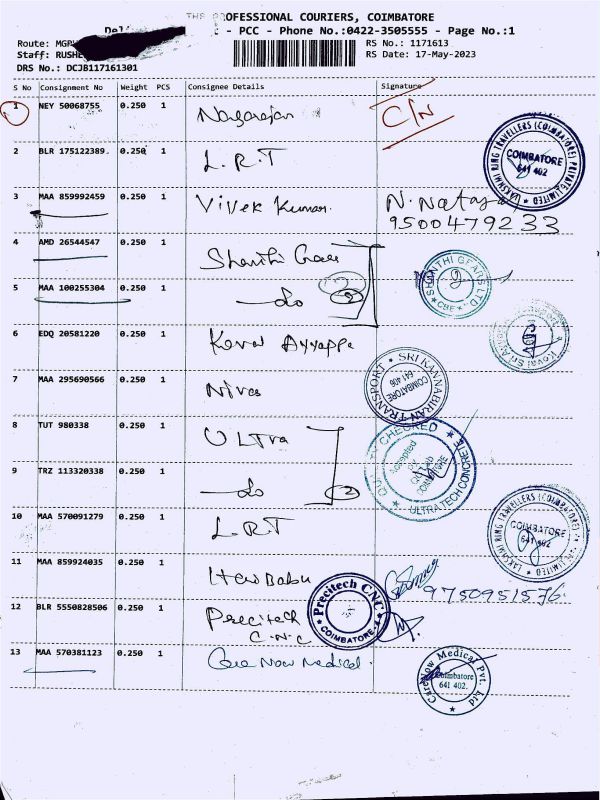 THE PROFESSIONAL COURIERS, COIMBATORE
- PCC - Phone No.:0422-3505555 - Page No.:1
Route: RS No.: 1171613
Staff: RS Date: 17-May-2023
DRS No.: DCJB117161301
S No Consignment No Weight PCS Consignee Details Signature
1 NEY 50068755 0.250 1 Nagarajan C/N
LAKSHMI RING TRAVELLERS (COIMBATORE) PRIVATE LIMITED
COIMBATORE
641 402
2 BLR 175122389 0.250 1 L.R.T
3 MAA 859992459 0.250 1 Vivek Kumar. N. Nataraj
9500479233
4 AMD 26544547 0.250 1 Shanthi Gears
SHANTHI GEARS LTD
CBE
5 MAA 100255304 0.250 1 do 2
6 EDQ 20581220 0.250 1 Kovai Ayyappa
7 MAA 295690566 0.250 1
SRI KANNABIRAN TRANSPORT
COIMBATORE
641 406
8 TUT 980338 0.250 1 ULTra
QUALITY CHECKED
Accepted
ULTRATECH CONCRETE
9 TRZ 113320338 0.250 1 do 2
10 MAA 570091279 0.250 1 LRT
LAKSHMI RING TRAVELLERS (COIMBATORE) PRIVATE LIMITED
COIMBATORE
641 402
11 MAA 859924035 0.250 1 Babu 9750951576
12 BLR 5550828506 0.250 1 Precitech
C.N.C
Precitech CNC
COIMBATORE
13 MAA 570381123 0.250 1 Care Now Medical.
CareNow Medical Pvt. Ltd
Coimbatore
641 402.